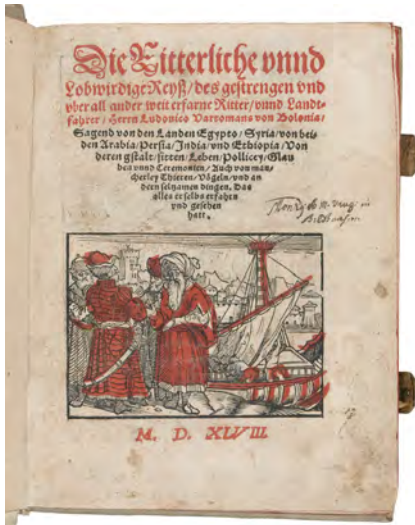 Die Ritterliche vnnd
Lobwirdige Reyß/ des gestrengen vnd
vber all ander weit erfarne Ritter/ vnnd Landt-
fahrer/ Herrn Ludonico Vartomans von Bolonia/
Sagend von den Landen Egypto/ Syria/ von bei-
den Arabia/ Persia/ India/ vnd Ethiopia/ Von
deren gstalt/ sitten/ Leben/ Pollicey/ Glau
ben vnnd Ceremonien/ Auch von man-
cherley Thieren/ Vögeln/ vnd an
dern seltzamen dingen. Das
alles er selbs erfahrn
vnd gesehen
hatt.
M. D. XLVIII.